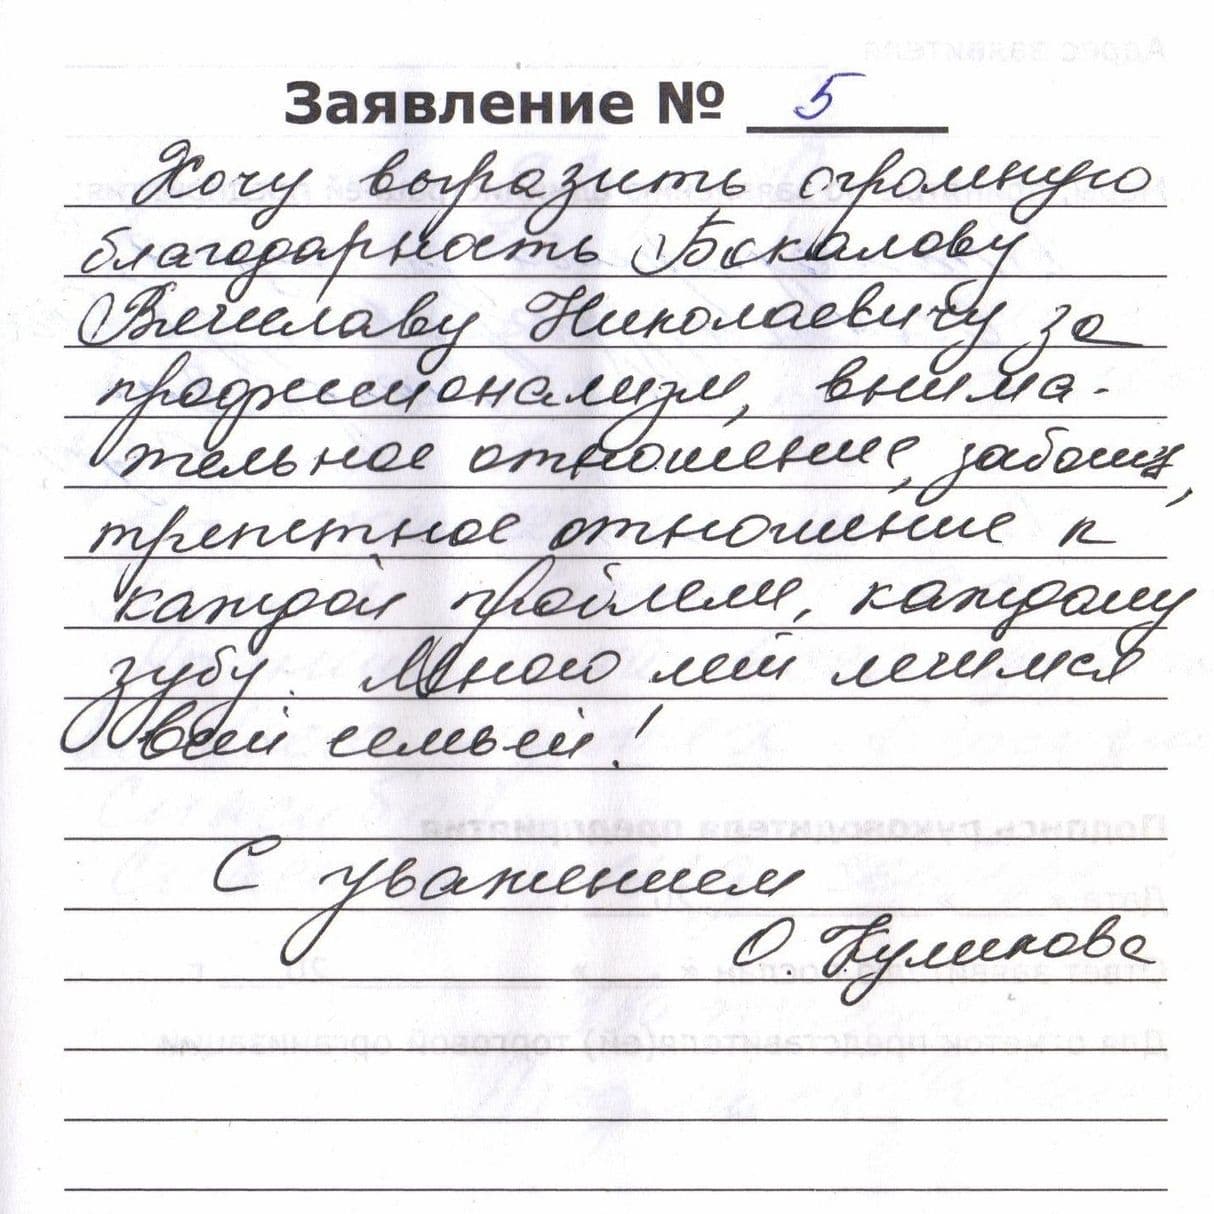 Заявление № 5
Хочу выразить огромную
благодарность Бокалову
Вячеславу Николаевичу за
профессионализм, внима-
тельное отношение, заботу,
трепетное отношение к
каждой проблеме, каждому
зубу. Много лет лечимся
всей семьей!
С уважением
О. Куликова